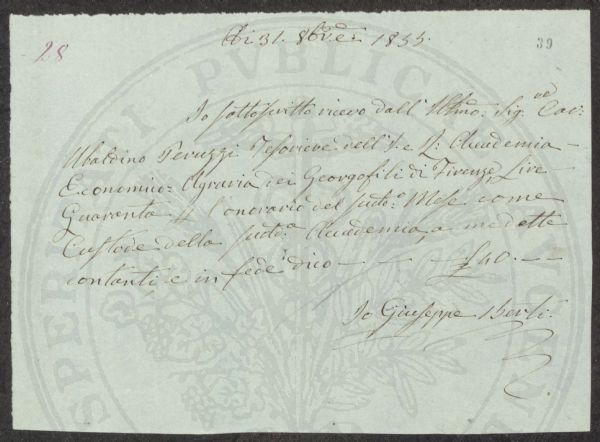 28
Di 31. 8bre: 1855.
39
Io sottoscritto ricevo dall' Illmo: Sig.re Cav:
Ubaldino Peruzzi Tesoriere dell' I. e R: Accademia
Economico: Agraria dei Georgofili di Firenze, Lire
Quaranta p l'onorario del sudd.o Mese come
Custode della sudd.a Accademia, a me dette
contanti e in fede dico - - - £ 40. - -
Io Giuseppe Berti.
PUBLICA
PROSPERITATI